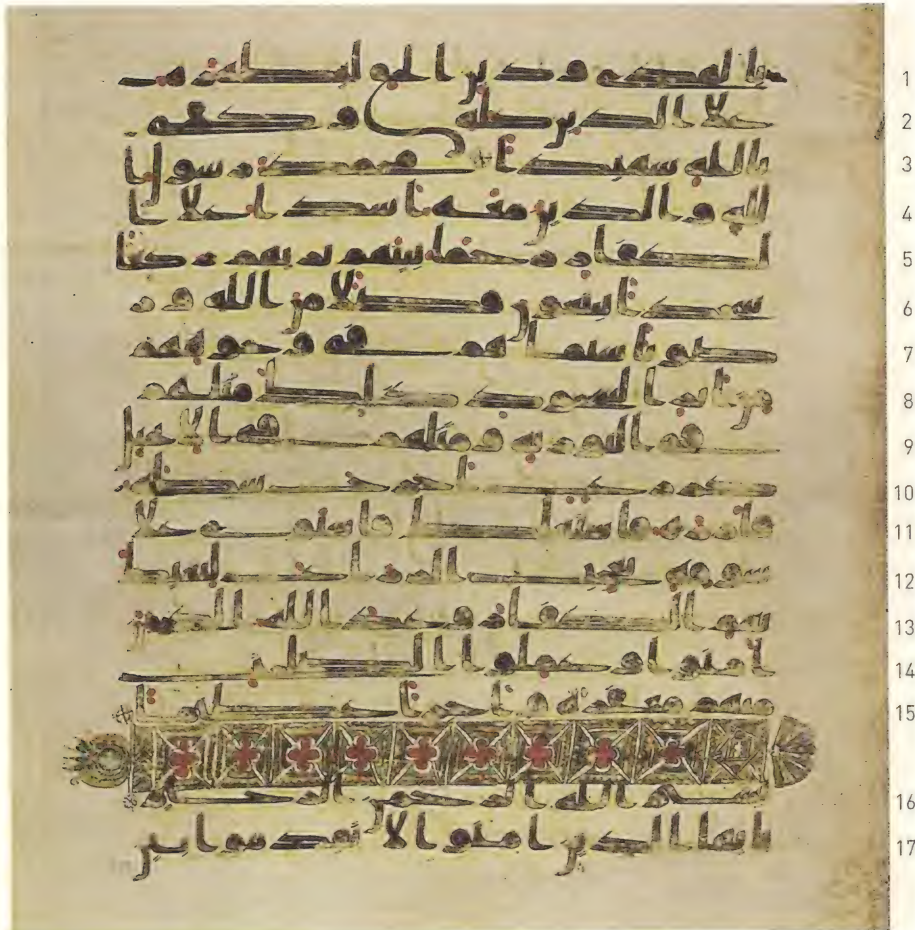 بالهدى ودين الحق ليظهره 1
على الدين كله وكفى 2
بالله شهيدا محمد رسول ا 3
لله والذين معه اشدا على ا 4
لكفار رحما بينهم تريهم ركعا 5
سجدا يبتغون فضلا من الله ور 6
ضونا سيماهم في وجوههم 7
من اثر السجود ذلك مثلهم 8
في التورية ومثلهم في الانجيل 9
كزرع اخرج شطه 10
فازره فاستغلظ فاستوى على 11
سوقه يعجب الزراع ليغيظ 12
بهم الكفار وعد الله الذين 13
امنوا وعملوا الصلحت 14
منهم مغفرة واجرا عظيما 15
بسم الله الرحمن الرحيم 16
يايها الذين امنوا لا تقدموا بين 17